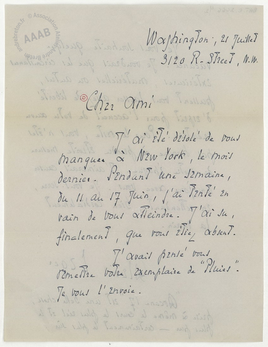 AAAB
Washington, 21 Juillet
3120 R. Street, N.W.
Cher Ami
J'ai été désolé de vous
manquer à New York, le mois
dernier. Pendant une semaine,
du 11 au 17 Juin, j'ai tenté en
vain de vous atteindre. J'ai su,
finalement, que vous étiez absent.
J'avais pensé vous
remettre votre exemplaire de "Pluies".
Je vous l'envoie.